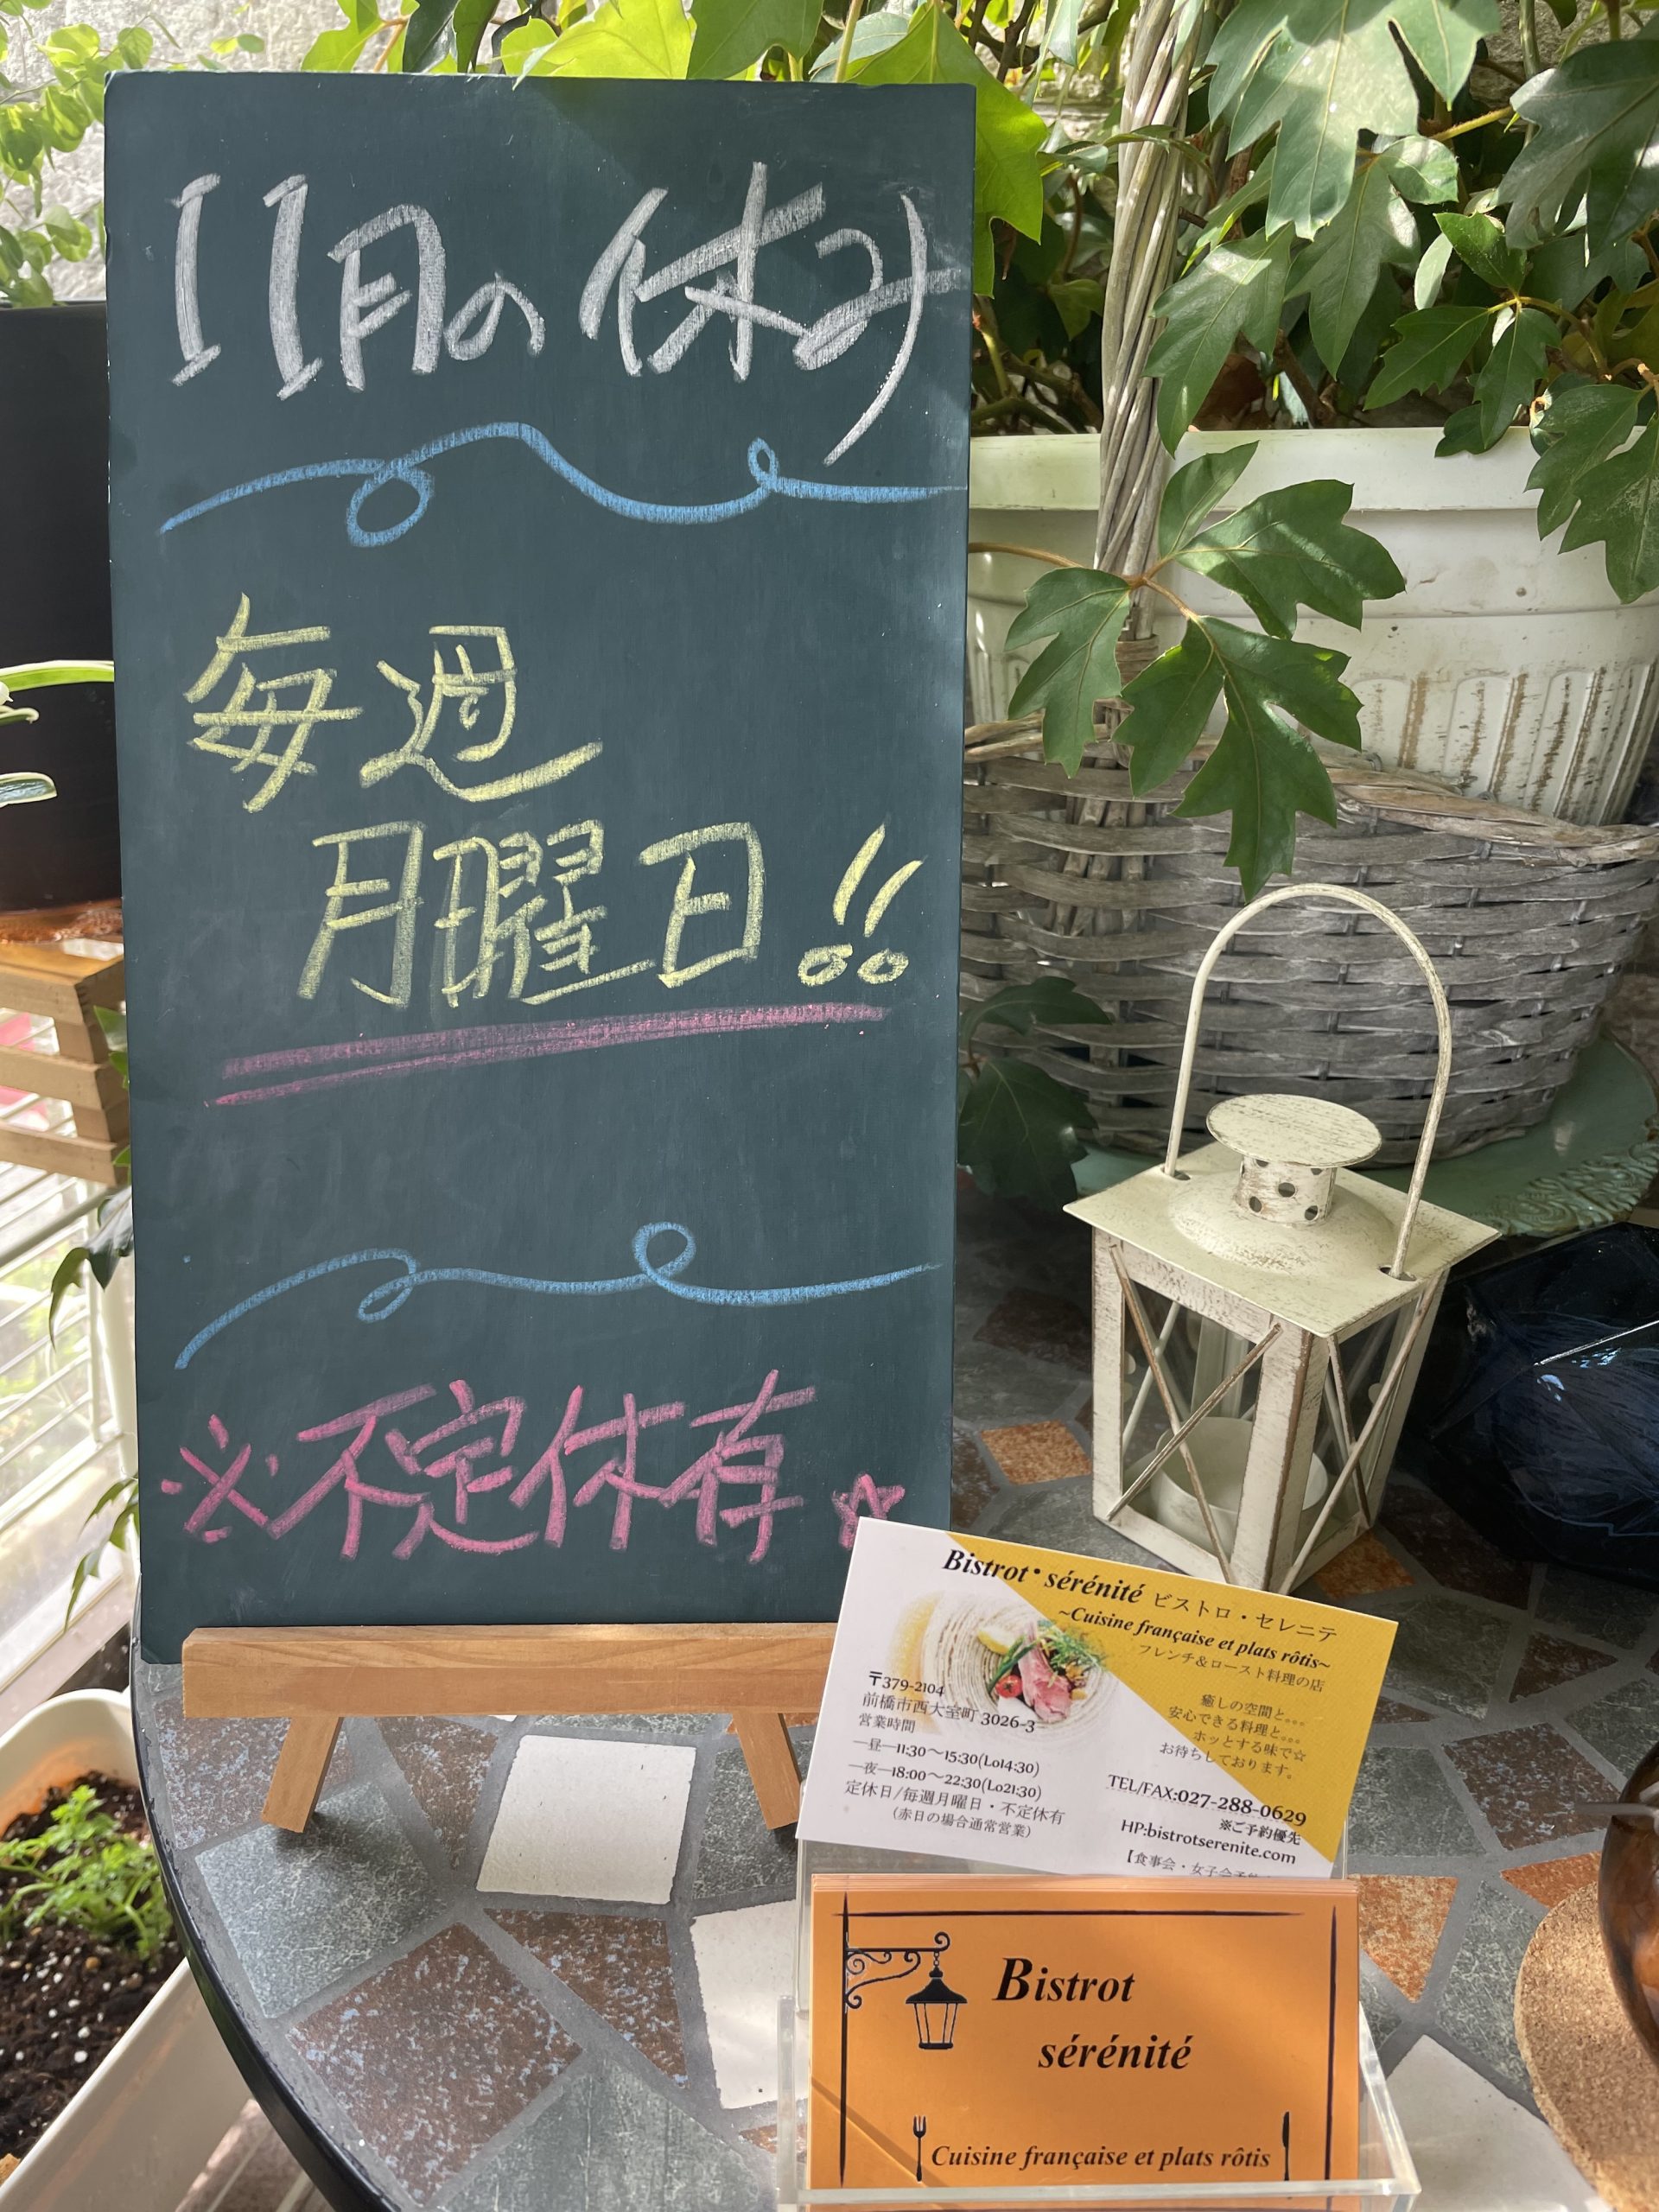 11月の休み
毎週
月曜日!!
※不定休有☆
Bistrot・sérénité ビストロ・セレニテ
~Cuisine française et plats rôtis~
フレンチ&ロースト料理の店
〒379-2104
前橋市西大室町3026-3
営業時間
―昼―11:30〜15:30(Lo14:30)
―夜―18:00〜22:30(Lo21:30)
定休日/毎週月曜日・不定休有
(赤日の場合通常営業)
癒しの空間と。。。
安心できる料理と。。。
ホッとする味で☆
お待ちしております。
TEL/FAX:027-288-0629
※ご予約優先
HP:bistrotserenite.com
【食事会・女子会
Bistrot
sérénité
Cuisine française et plats rôtis